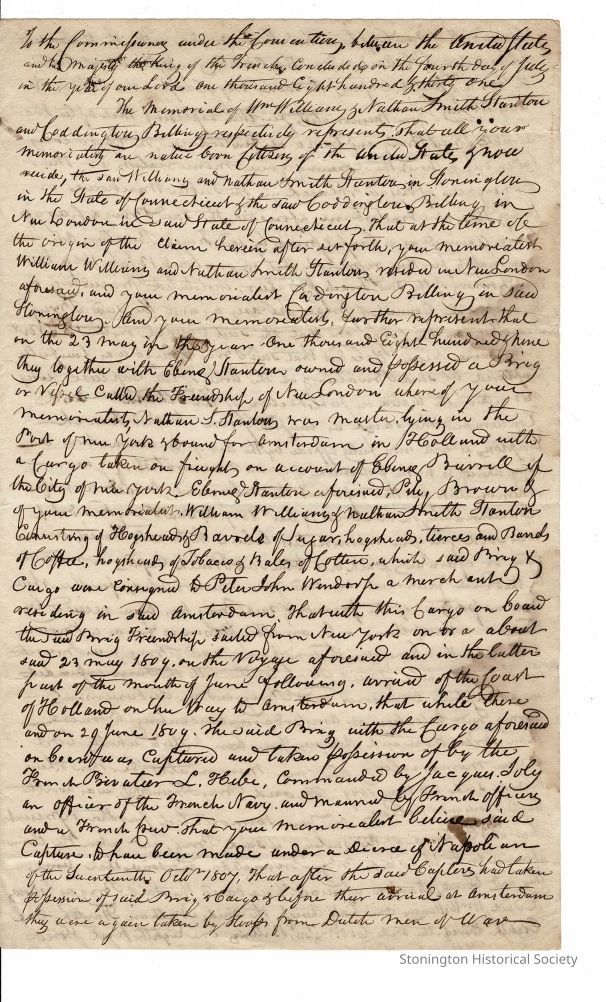 To the Commissioners under the Convention, between the United States
and his Majesty the King of the French, Concluded on the fourth day of July
in the year of our Lord one thousand Eight hundred & thirty one
The Memorial of Wm Williams, & Nathan Smith Stanton
and Coddington Billings respectively represents, that all your
memorialists are native born Citizens of the United States, & now
reside, the said Williams and Nathan Smith Stanton in Stonington
in the State of Connecticut & the said Coddington Billings in
New London in said State of Connecticut, That at the time of
the origin of the Claim herein after set forth, your memorialists
William Williams and Nathan Smith Stanton resided in New London
aforesaid, and your memorialist Coddington Billings in said
Stonington. And your memorialists, further represent that
on the 23 may in the year One thousand Eight hundred & nine
they together with Ebenr Stanton owned and possessed a Brig
or Vessel Called the Friendship of New London whereof your
memorialist Nathan S. Stanton was master, lying in the
Port of New York & bound for Amsterdam in Holland with
a Cargo taken on freight on account of Ebenr Burrell of
the City of New York. Ebenr Stanton aforesaid, Brown &
of your memorialists William Williams & Nathan Smith Stanton
Consisting of Hogsheads & Barrels of Sugar, hogsheads, tierces and Barrels
of Coffee, hogsheads of Tobacco & Bales of Cotton, which said Brig &
Cargo were Consigned to Peter John a merchant
residing in said Amsterdam, That with this Cargo on board
the said Brig Friendship sailed from New York on or about
said 23 may 1809. on the Voyage aforesaid and in the latter
part of the month of June following, arrived of the Coast
of Holland on her Way to Amsterdam, that while there
and on 29 June 1809. The said Brig with the Cargo aforesaid
on board was Captured and taken possession of by the
French Privatier L. Hebe, Commanded by Jacques Joly
an officer of the French Navy. and manned by French officers
and a French Crew. That your memorialist believe said
Capture to have been made under a Decree of Napolean
of the Seventeenth Octbr 1807, That after the said Captors had taken
possession of said Brig & Cargo & before their arrival at Amsterdam
they were again taken by Sloops from Dutch men of War
Stonington Historical Society